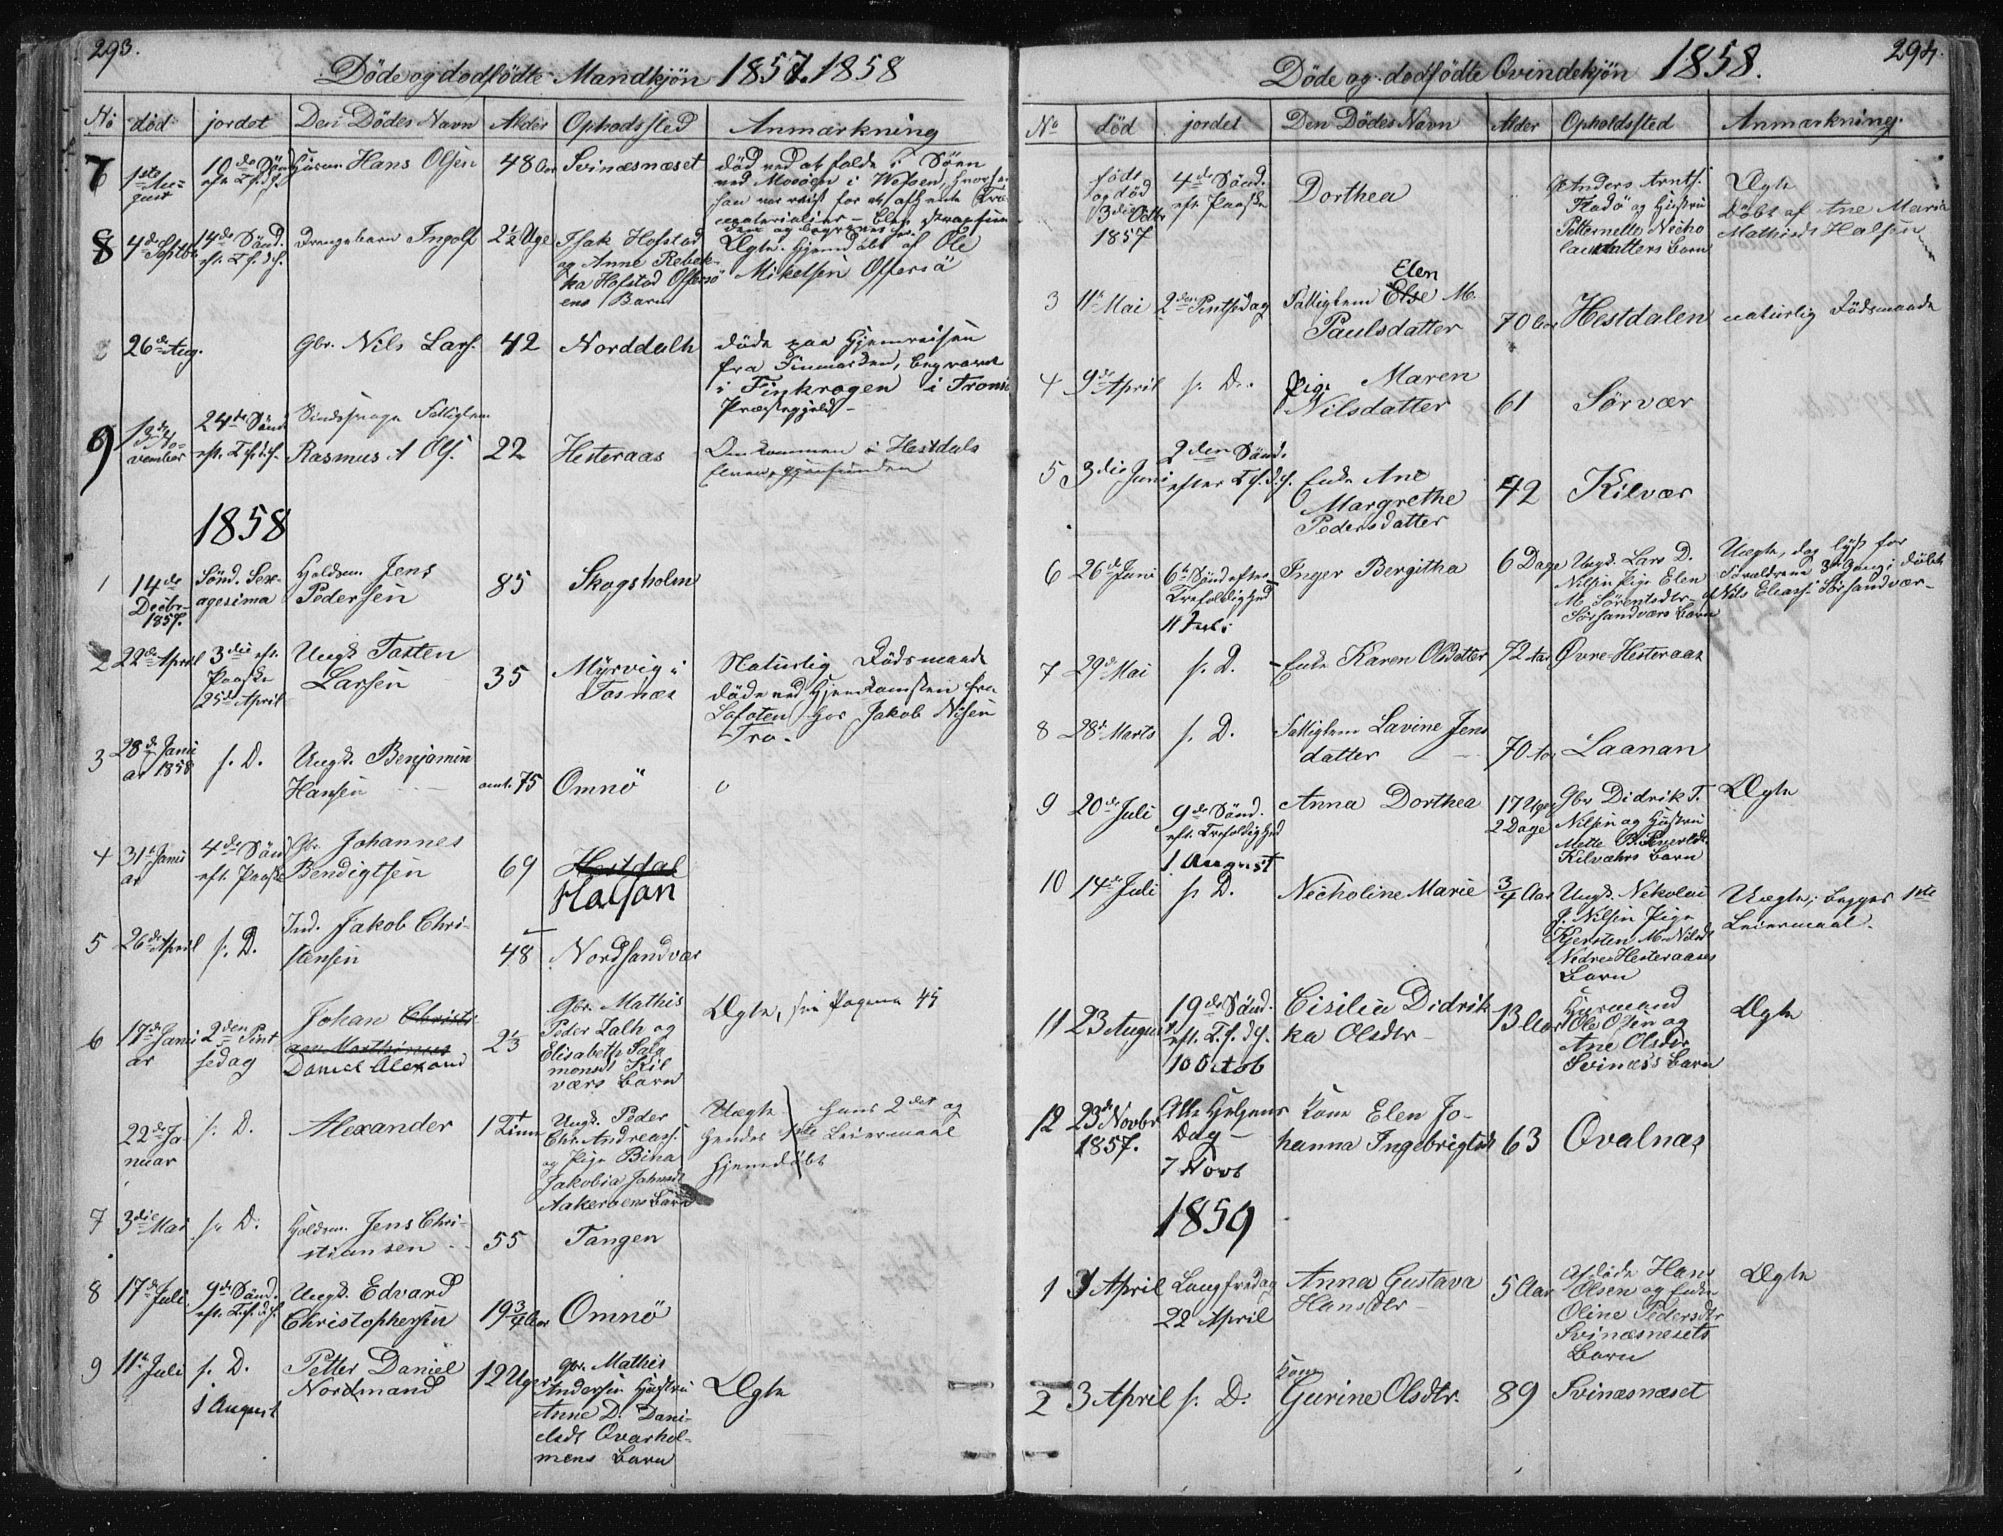 293.
Døde og dødfødte Mandkjøn 1857. 1858
No død jordet Den Dødes Navn Alder Opholdssted Anmærkning
7 1ste August 10de Sønd. eft. T.f.d.f. Huusm. Hans Olsen 48 Aar Svinæsnæset død ved at falde i Søen
ved Mosøen i Vefsen, hvorhen
han var reist for at afhente Træ
materialier
8 4de Septbr 14de Sønd. eft. T.f.d.f. Drengebarn Ingolf 2½ Uge Isak Hofstad
og Anne Rebek-
ka Hofstad Offersø
ens Barn
Ægte. Hjemdøbt af Ole
Mikelsen Offersø
8 26de Aug. Gbr. Nils Lars. 42 Norddalh døde paa Hjemreisen
fra Finmarken, begravet
i Finkrogen i Tromsø
Præstegjeld
9 1ste November 24de Sønd. eft. T.f.d.f. Sindssvage Fattiglem
Rasmus A Ols. 22 Hesteraas Omkommen i Hestdals
Elven, gjenfunden
1858
1 14de Decbr. 1857. Sønd. Sex-
agesima Holdsm. Jens
Pedersen 85 Skogsholm
2 22de April 3die eft.
Paaske
25de April Ungk. Tosten
Larsen 35 Myrvig i
Tosnæs Naturlig Dødsmaade
døde ved Hjemkomsten fra
Lofoten hos Jakob Nilsen
Tro.
3 28de Janu
ar 1858 s. D. Ungk. Benjamin
Hansen omt. 75 Omnø
4 31te Janu
ar 4de Sønd
eft. Paaske Gbr. Johannes
Bendigtsen 69 Hestdal
Halsan
5 26de April s. D. Ind. Jakob Chri-
stensen 48 Nordsandvær
6 17de Janu
ar 2den Pint
sedag Johan Christi
an Marthinus
Daniel Alexand 2⅓ Gbr. Mathis
Peder Zalh og
Elisabeth Salo
monsd. Kil
værs Barn Ægte, see Pagina 45
22de Ja-
nuar s. D. Alexander 1 Time Ungk. Peder
Chr. Andreass.
og Pige Bina
Jakobia Johnsd.
Aakerøens Barn Uægte hans 2det og
hendes 1ste Leiermaal
hjemdøbt
7 3die Mai s. D. Holdsm. Jens Chri-
stiansen 55 Tangen
8 17de Juli 9de Sønd.
eft. T.f.d.f. Ungk. Edvard
Christophersen 19¾ Aar Omnø
9 11te Juli s. D.
1 August Petter Daniel
Nordmand 12 Uger Gbr. Mathis
Andersen Hustru
Anne D. Dani-
elsd. Qvarhol-
mens Barn Ægte
294.
Døde og dødfødte Qvindekjøn 1858.
No død jordet Den Dødes Navn Alder Opholdssted Anmærkning.
født
og død
3die Octbr
1857 4de Sønd.
eft. Paaske Dorthea Anders Arnts.
Fladø og Hustru
Petternelle Nicho
laidatters Barn Ægte
Døbt af Ane Maria
Mathisd. Halsen
3 11te Mai 2den Pintsedag Fattiglem Else M. Elen
Paulsdatter 70 Aar Hestdalen naturlig Dødsmaade
4 9de April s. D. Pige Maren
Nilsdatter 61 Sørvær
5 3die Juni 2den Sønd.
efter T.f.d.f. Enke Ane
Margrethe
Pedersdatter 42 Kilvær
6 26de Juni 6te Sønd efter
Trefoldighed
11 Juli Inger Bergitha 6 Dage Ungk. Lars D.
Nilsen Pige Elen
M. Sørentsdtr.
Sørsandværs Barn Uægte, dog lyst for
Forældrene 3de Gang; døbt
af Nils Eliass. Sørsandvær
7 29de Mai s. D. Enke Karen Olsdatter 72 Aar Øvre Hesteraas
8 28de Marts s. D. Fattiglem Lavine Jens
datter 70 Aar Laanan
9 20de Juli 9de Sønd.
eft. Trefoldighed
1 August Anna Dorthea 17 Uger
2 Dage Gbr Didrik T.
Nilsen og Hustru
Mette B. Sivertsd.
Kilværs Barn Ægte
10 14de Juli s. D. Necholine Marie ¾ Aar Ungk. Nekolai
J. Nilsen Pige
Kjersten M. Nilsd.
Nedre Hesteraases
Barn Uægte, begges 1ste
Leiermaal.
11 23 August 19de Sønd.
eft. T.f.d.f.
10 Octob Cisilie Didrik
ka Olsdtr 13 Aar Husmand
Ole Olsen og
Ane Olsdtr
Svinæss Barn Ægte
12 23de Novbr
1857. Alle Helgens
Dag
7 Novb Kone Elen Jo-
hanna Ingebrigtsd. 63 Qvalnæs
1859
1 3 April Langfredag
22 April Anna Gustava
Hansdtr 5 Aar Afdøde Hans
Olsen og Enke
Oline Pedersdtr
Svinæsnesets
Barn Ægte
2 3 April s. D. Kone
Gurine Olsdtr. 89 Svinæsnæset